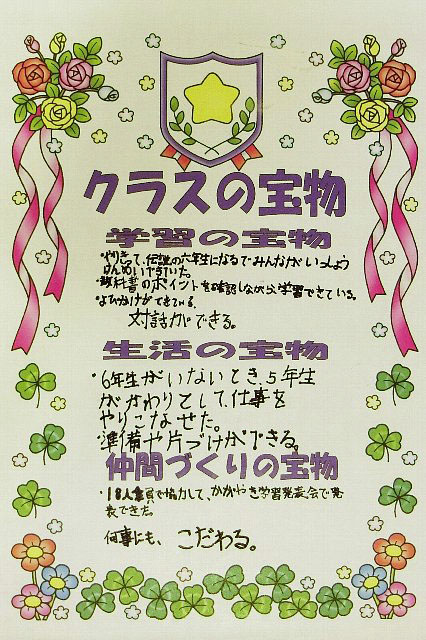 クラスの宝物
学習の宝物
・やりきって、伝説の六年生になるでみんながいっしょう
けんめいできていた。
・教科書のポイントを確認しながら学習できている。
・よびかけができている。
対話ができる。
生活の宝物
・6年生がいないとき、5年生
がかわりとして、仕事を
やりこなせた。
・準備や片づけができる。
仲間づくりの宝物
・18人全員で協力して、かがやき学習発表会で発
表できた。
何事にも、こだわる。